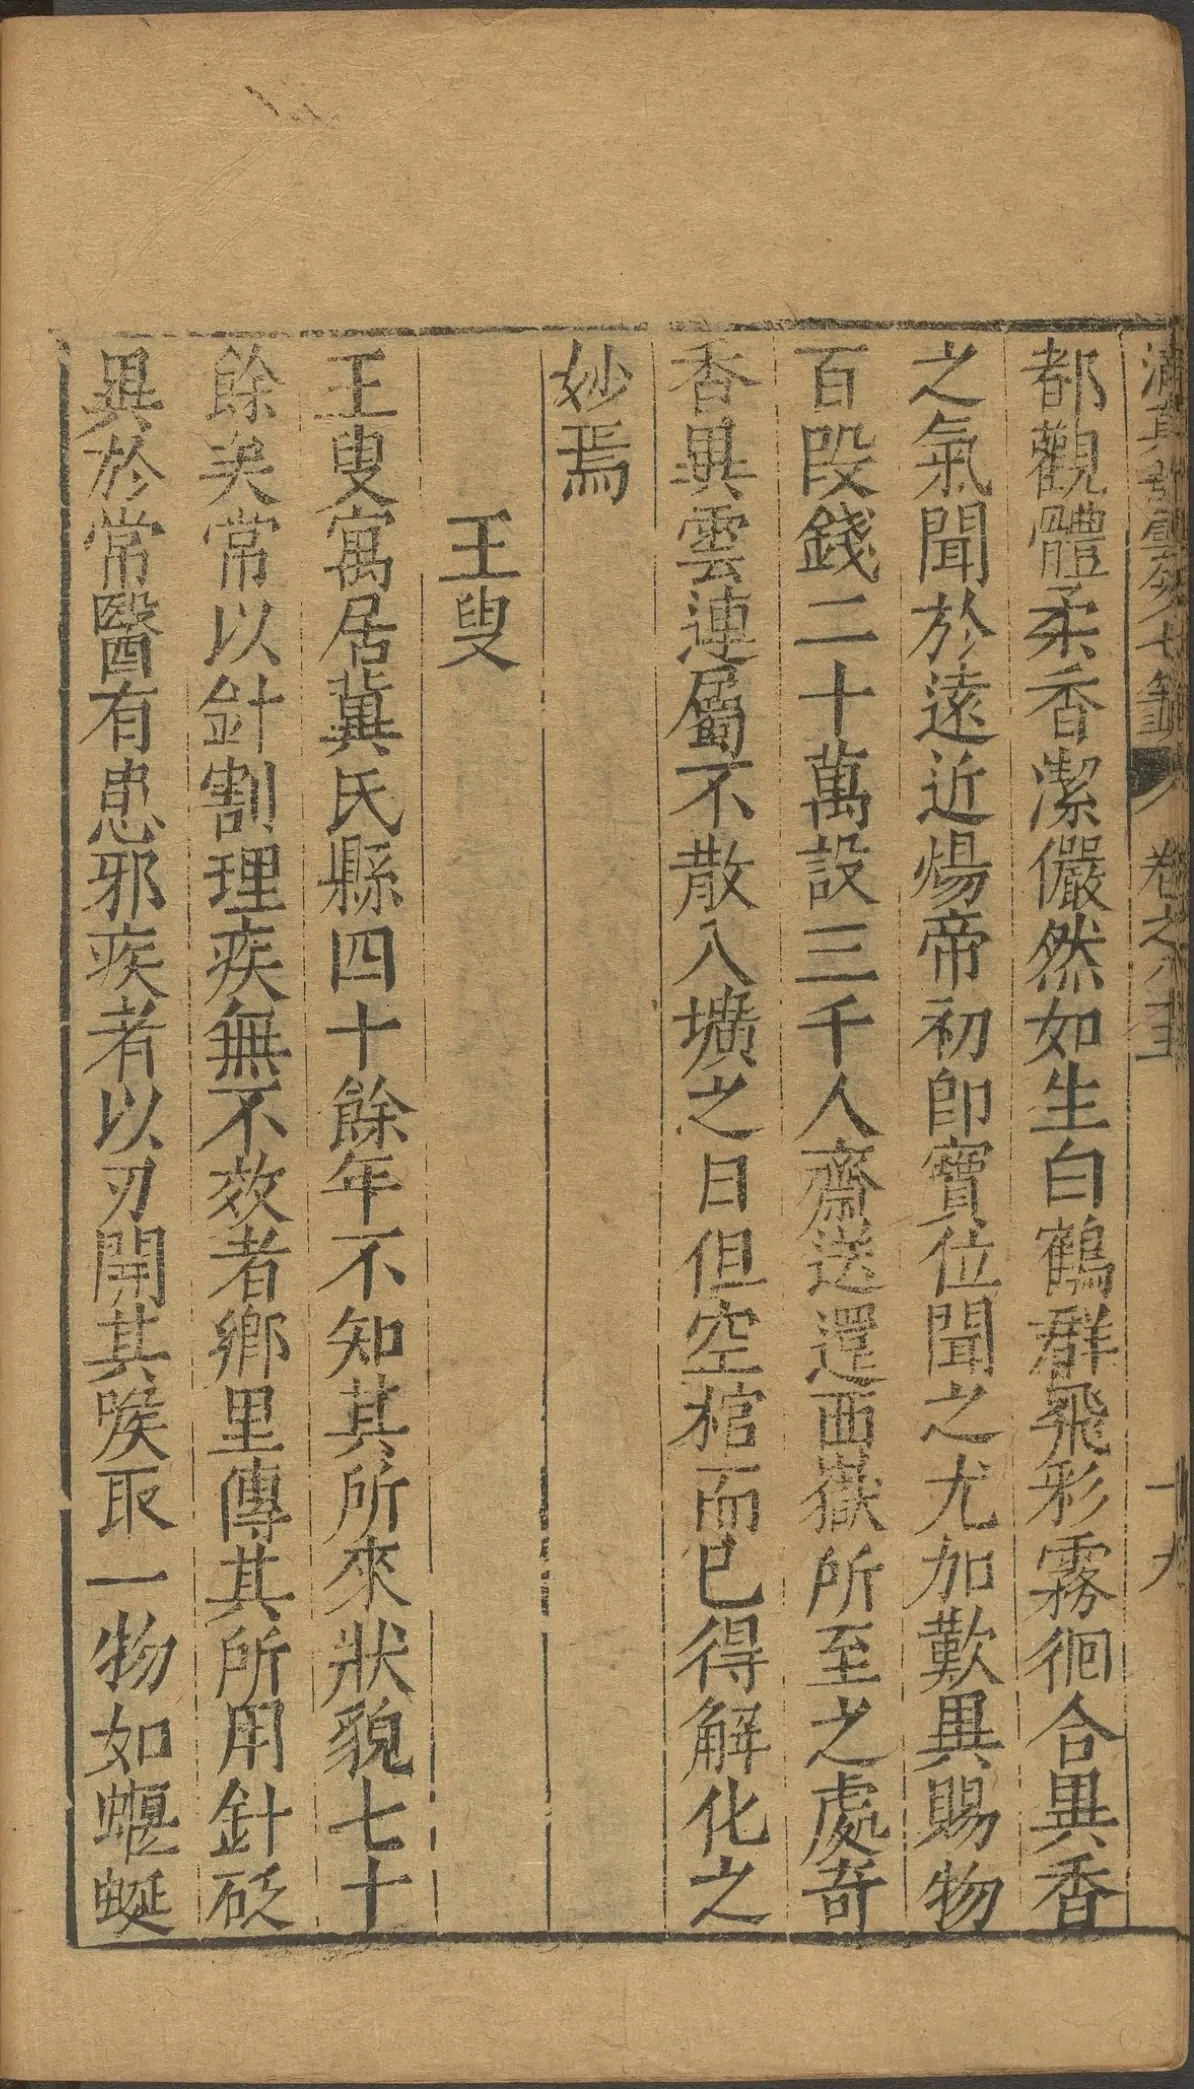 卷之八十五 十九
都觀體柔香潔儼然如生白鶴群飛彩霧徊合異香
之氣聞於遠近煬帝初卽寶位聞之尤加歎異賜物
百段錢二十萬設三千人齋送還西嶽所至之處奇
香異雲連屬不散入壙之日但空棺而已得解化之
妙焉
王叟
王叟寓居冀氏縣四十餘年不知其所來狀貌七十
餘矣常以針割理疾無不效者鄉里傳其所用針砭
異於常醫有患邪疾者以刃開其喉取一物如蝘蜒